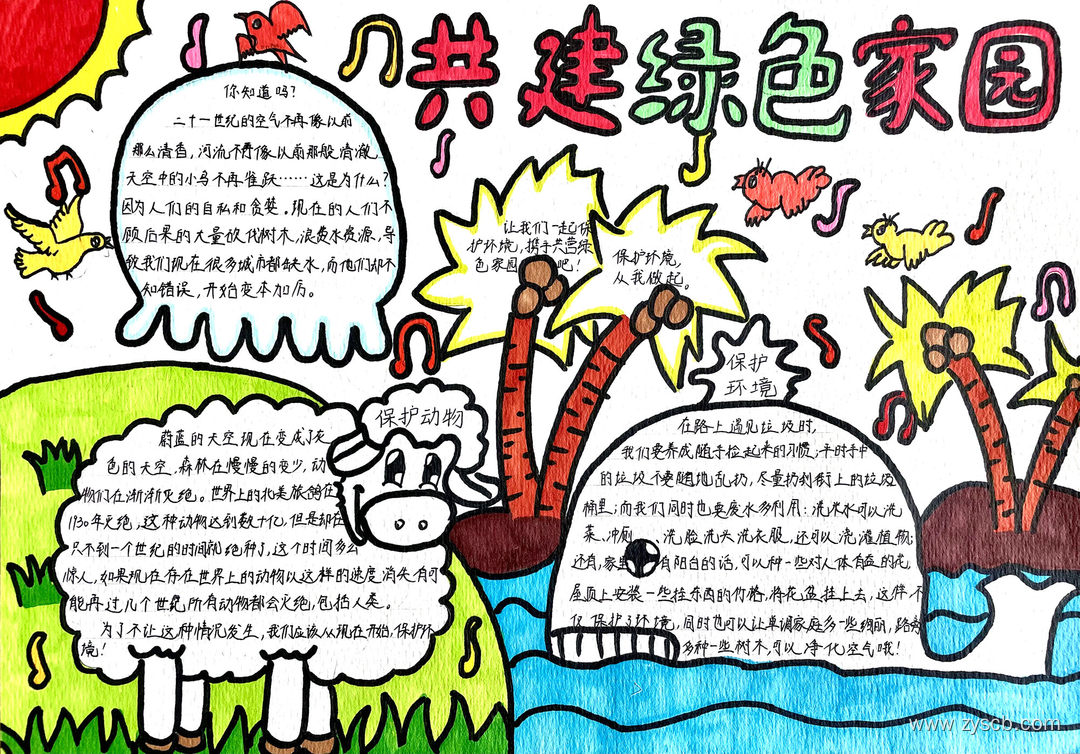 共建绿色家园
你知道吗？
二十一世纪的空气不再像以前
那么清香，河流不再像以前那般清澈，
天空中的小鸟不再雀跃……这是为什么？
因为人们的自私和贪婪。现在的人们不
顾后果的大量放伐树木，浪费水资源，导
致我们现在很多城市都缺水，而他们却不
知错误，开始变本加厉。
让我们一起保
护环境，携手共营绿
色家园吧！
保护环境，
从我做起。
保护动物
蔚蓝的天空现在变成了灰
色的天空，森林在慢慢的变少，动
物们在渐渐灭绝。世界上的北美旅鸽在
1930年灭绝，这种动物达到数十亿，但是却在
只不到一个世纪的时间就绝种了，这个时间多么
惊人，如果现在存在世界上的动物以这样的速度消失，有可
能再过几个世纪所有动物都会灭绝，包括人类。
为了不让这种情况发生，我们应该从现在开始，保护环
境！
保护
环境
在路上遇见垃圾时，
我们要养成随手捡起来的习惯，平时手中
的垃圾不要随地乱扔，尽量扔到街上的垃圾
桶里；而我们同时也要废水多利用：洗米水可以洗
菜、冲厕 洗脸洗头洗衣服，还可以浇灌植物；
还有，家里 有阳台的话，可以种一些对人体有益的花，
屋顶上安装一些挂东西的竹格，将花盆挂上去，这样不
仅保护了环境，同时也可以让单调家庭多一些绚丽，路旁
多种一些树木，可以净化空气哦！
www.zyscb.com